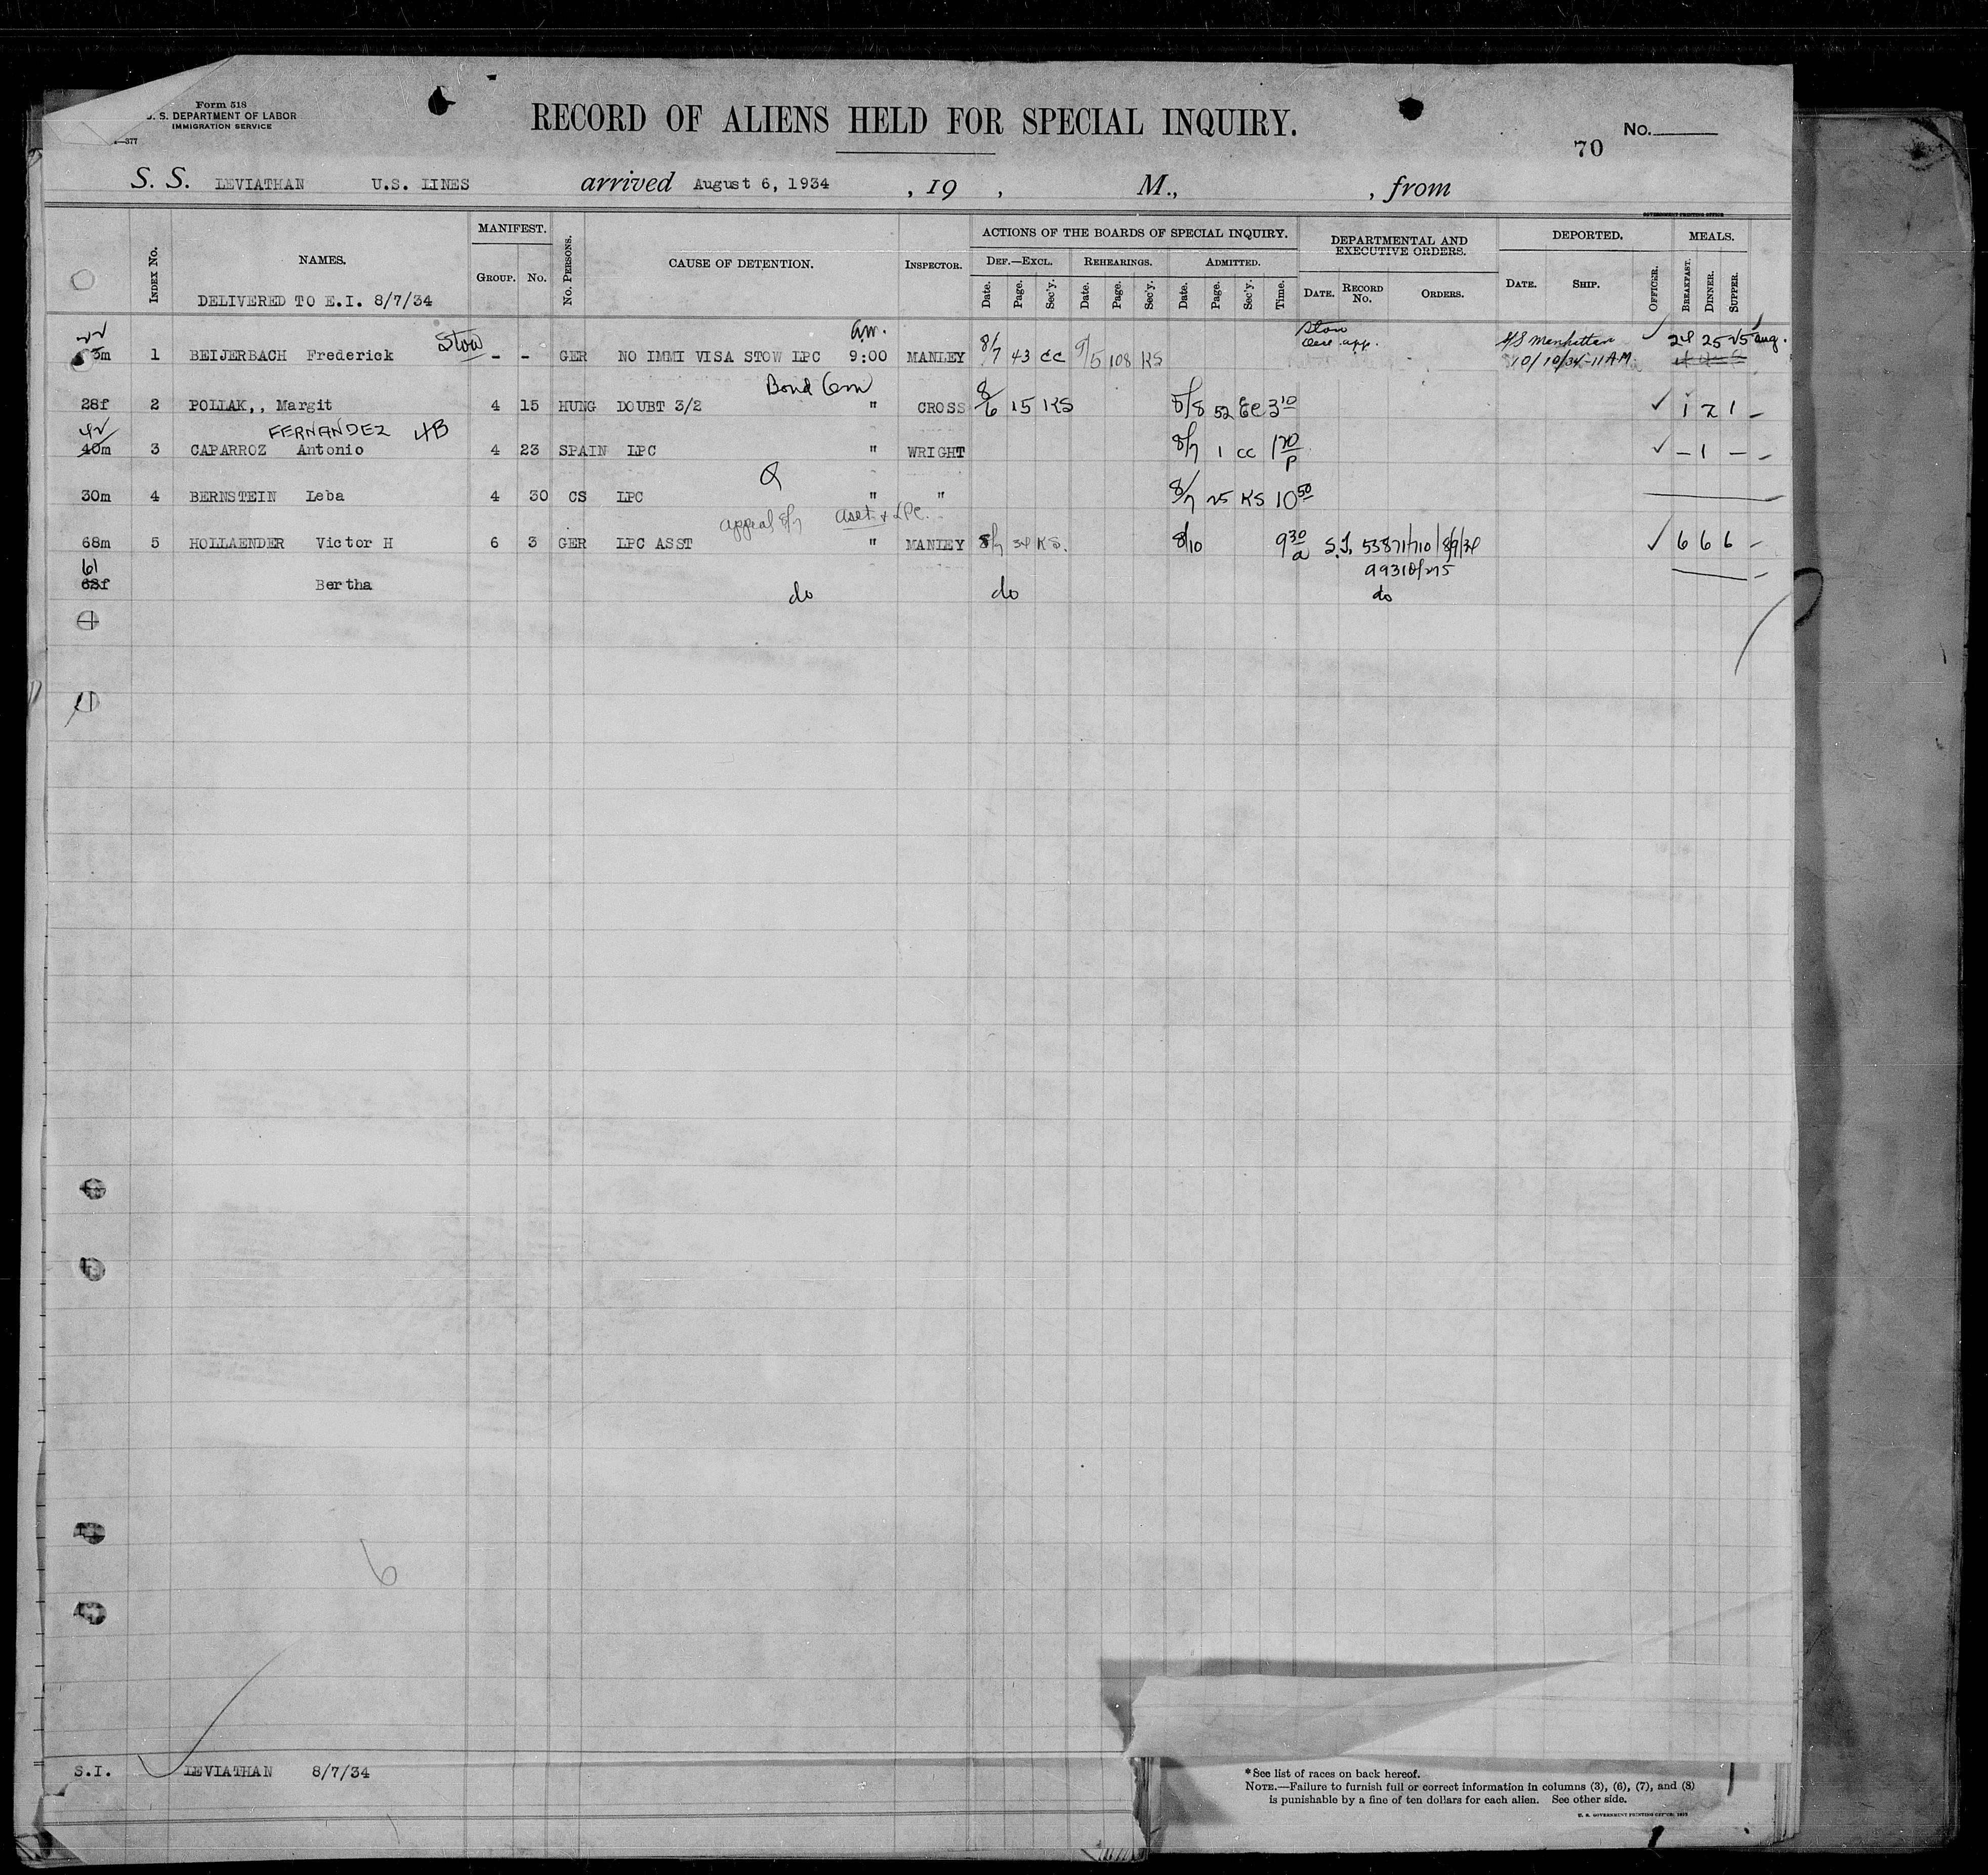 Form 518
U. S. DEPARTMENT OF LABOR
IMMIGRATION SERVICE
—377
RECORD OF ALIENS HELD FOR SPECIAL INQUIRY.
No.
70
S. S. LEVIATHAN U.S. LINES arrived August 6, 1934 , 19 , M., , from
GOVERNMENT PRINTING OFFICE
INDEX NO. NAMES. MANIFEST. NO. PERSONS. CAUSE OF DETENTION. INSPECTOR. ACTIONS OF THE BOARDS OF SPECIAL INQUIRY. DEPARTMENTAL AND EXECUTIVE ORDERS. DEPORTED. MEALS.
GROUP. NO. DEF.—EXCL. REHEARINGS. ADMITTED. DATE. RECORD NO. ORDERS. DATE. SHIP. OFFICER. BREAKFAST. DINNER. SUPPER.
Date. Page. Sec'y. Date. Page. Sec'y. Date. Page. Sec'y. Time.
DELIVERED TO E.I. 8/7/34
Stow a.m. Stow
3m 1 BEIJERBACH Frederick - - GER NO IMMI VISA STOW LPC 9:00 MANLEY 8/7 43 CC 9/5 108 KS app. S/S Manhattan 24 25 25 aug.
10/10/34-11AM
Bond
28f 2 POLLAK,, Margit 4 15 HUNG DOUBT 3/2 " CROSS 8/6 15 KS 8/8 52 310 1 2 1 -
42 FERNANDEZ 4B
40m 3 CAPARROZ Antonio 4 23 SPAIN LPC " WRIGHT 8/7 1 CC 120 P - 1 - -
30m 4 BERNSTEIN Leba 4 30 CS LPC " " 8/7 25 KS 1050
appeal 8/7 Asst & LPC.
68m 5 HOLLAENDER Victor H 6 3 GER LPC ASST " MANLEY 8/7 34 KS. 8/10 930 a S.I. 53871/710 8/9/34 6 6 6 -
61 99310/275
68f Bertha do do do
6
S.I. LEVIATHAN 8/7/34
* See list of races on back hereof.
NOTE.—Failure to furnish full or correct information in columns (3), (6), (7), and (8)
is punishable by a fine of ten dollars for each alien. See other side.